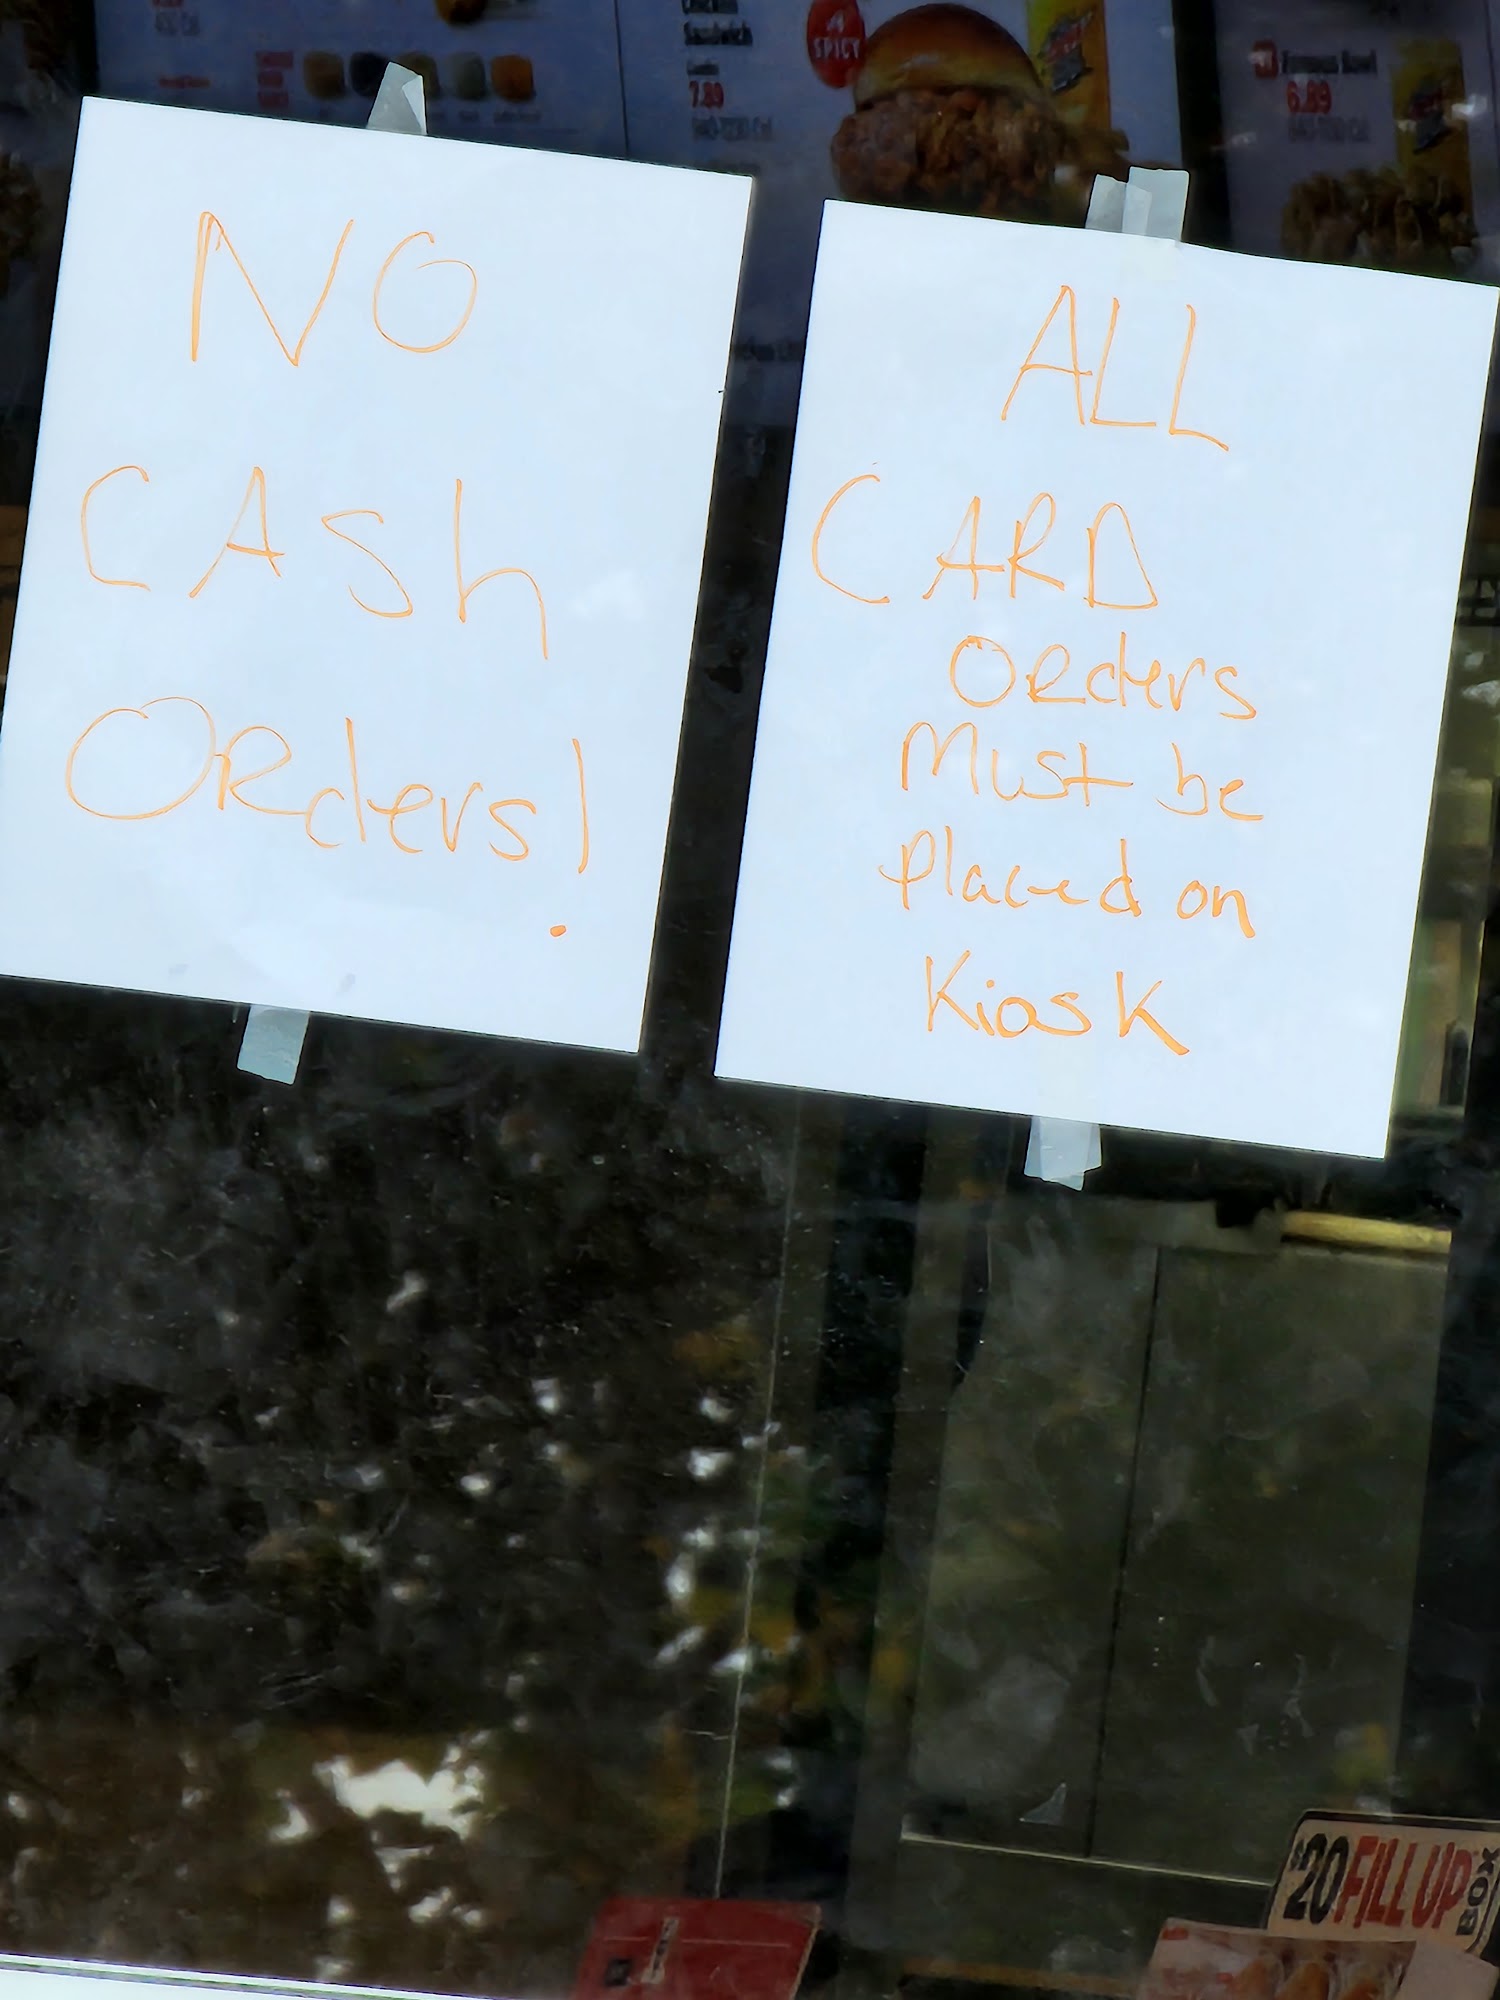 Sandwich
7.89
SPICY
Famous Bowl
6.89
NO
CASh
ORders!
ALL
CARD
ORders
Must be
Placed on
Kiosk
$20 FILL UP BOX